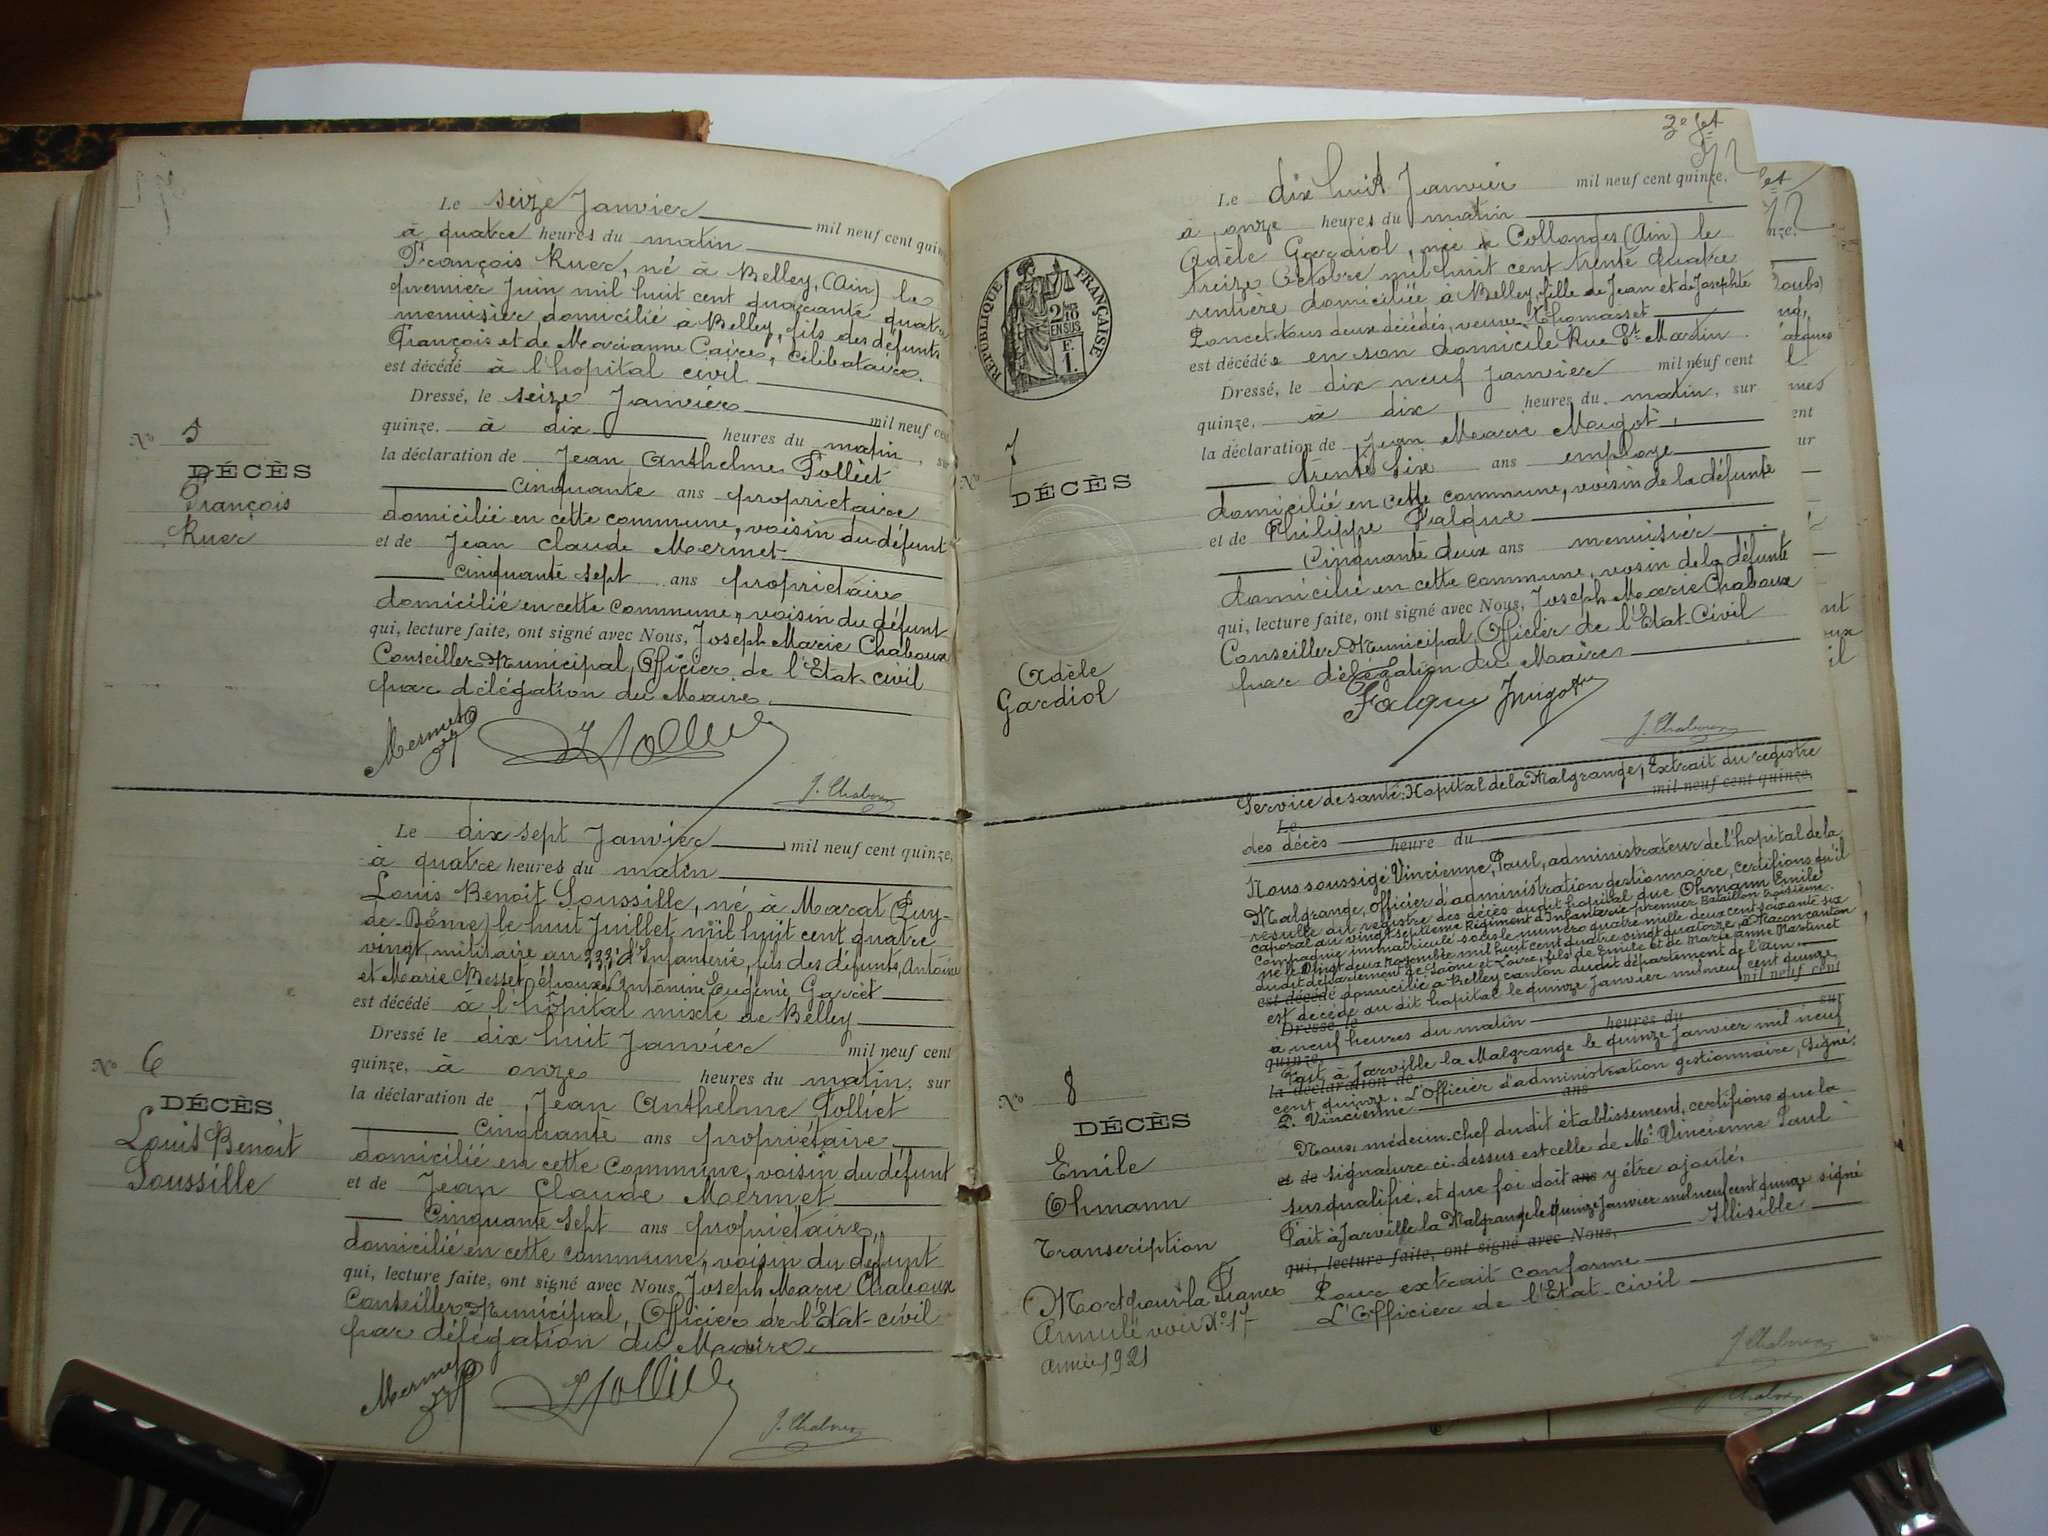 Le seize Janvier mil neuf cent quin
à quatre heures du matin
François Ruer, né à Belley, (Ain) le
premier Juin mil huit cent quarante quatre
menuisier domicilié à Belley, fils des défunts
François et de Marianne Caire, célibataire.
est décédé à l'hopital civil
Dressé, le seize Janvier mil neuf cent
quinze, à dix heures du matin, su
la déclaration de Jean Anthelme Polliet
cinquante ans propriétaire
domicilié en cette commune, voisin du défunt
et de Jean Claude Mermet
cinquante sept ans propriétaire
domicilié en cette commune, voisin du défunt
qui, lecture faite, ont signé avec Nous, Joseph Marie Chaboux
Conseiller Municipal, Officier de l'Etat-civil
par délégation du Maire.
Mermet Polliet
J. Chaboux
No 5
DÉCÈS
François
Ruer
Le dix sept Janvier mil neuf cent quinze,
à quatre heures du matin
Louis Benoit Soussille, né à Marat (Puy-
de-Dôme) le huit Juillet mil huit cent quatre
vingt, militaire au 333e d'Infanterie, fils des défunts Antoine
et Marie Besset, époux Antonine Eugénie Garret
est décédé à l'hôpital mixte de Belley
Dressé le dix huit Janvier mil neuf cent
quinze, à onze heures du matin, sur
la déclaration de Jean Anthelme Polliet
cinquante ans propriétaire
domicilié en cette commune, voisin du défunt
et de Jean Claude Mermet
cinquante sept ans propriétaire,
domicilié en cette commune, voisin du défunt
qui, lecture faite, ont signé avec Nous, Joseph Marie Chaboux
Conseiller Municipal, Officier de l'Etat-civil
par délégation du Maire.
Mermet Polliet
J. Chaboux
No 6
DÉCÈS
Louis Benoit
Soussille
2e fet
Le dix huit Janvier mil neuf cent quinze,
à onze heures du matin
Adèle Gardiol, née à Collonges (Ain) le
treize Octobre mil huit cent trente quatre
rentière domiciliée à Belley, fille de Jean et de Josephte
Poncet tous deux décédés, veuve Thomasset
est décédée en son domicile Rue St Martin
Dressé, le dix neuf Janvier mil neuf cent
quinze, à dix heures du matin, sur
la déclaration de Jean Marie Mugot,
trente six ans employé
domicilié en cette commune, voisin de la défunte
et de Philippe Falque
Cinquante deux ans menuisier
domicilié en cette commune, voisin de la défunte
qui, lecture faite, ont signé avec Nous, Joseph Marie Chaboux
Conseiller Municipal, Officier de l'Etat-Civil
par délégation du Maire
Falque Mugot
J. Chaboux
RÉPUBLIQUE FRANÇAISE
2/10
EN SUS
F.
1.
No 7
DÉCÈS
Adèle
Gardiol
Service de santé: Hopital de la Malgrange, Extrait du registre
mil neuf cent quinze,
Le
des décès heure du
Nous soussigé Vincienne, Paul, administrateur de l'hopital de la
Malgrange, Officier d'administration gestionnaire, certifions qu'il
résulte du registre des décès du dit hopital que Ohmann Emile
caporal au vingt septième Régiment d'Infanterie premier Bataillon troisième
compagnie immatriculé sous le numéro quatre mille deux cent soixante six
né le vingt deux novembre mil huit cent quatre vingt quatorze, à Macon canton
du dit département de Saône et Loire, fils de Emile et de Marie Anne Martinet
est décédé domicilié à Belley canton du dit département de l'Ain
est décédé au dit hopital le quinze Janvier mil neuf cent quinze
Dressé le mil neuf cent
à neuf heures du matin heures du sur
quinze,
Fait à Jarville la Malgrange le quinze Janvier mil neuf
la déclaration de
cent quinze. L'Officier d'administration gestionnaire, Signé:
P. Vincienne ans
Nous, médecin-chef du dit établissement, certifions que la
et de signature ci-dessus est celle de Mr Vincienne Paul
susqualifié, et que foi doit ans y être ajouté.
Fait à Jarville la Malgrange le quinze Janvier mil neuf cent quinze signé
Illisible
qui, lecture faite, ont signé avec Nous,
Pour extrait conforme
L'Officier de l'Etat-civil
J. Chaboux
No 8
DÉCÈS
Emile
Ohmann
Transcription
Mort pour la France
Annulé voir No 17
année 1921
J. Chaboux